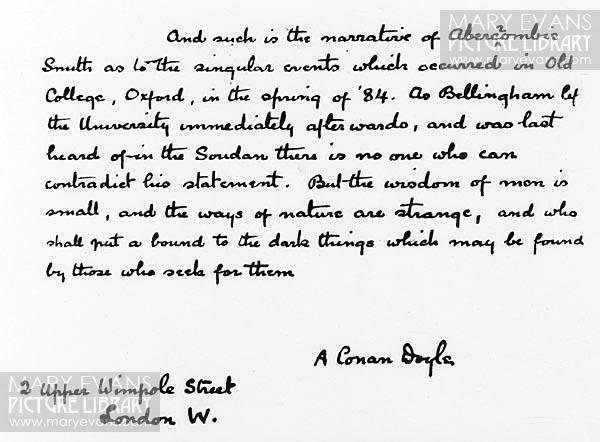 And such is the narrative of Abercrombie
Smith as to the singular events which occurred in Old
College, Oxford, in the spring of '84. As Bellingham left
the University immediately afterwards, and was last
heard of in the Soudan there is no one who can
contradict his statement. But the wisdom of men is
small, and the ways of nature are strange, and who
shall put a bound to the dark things which may be found
by those who seek for them
A Conan Doyle
2 Upper Wimpole Street
London W.
MARY EVANS
PICTURE LIBRARY
www.maryevans.com
MARY EVANS
PICTURE LIBRARY
www.maryevans.com